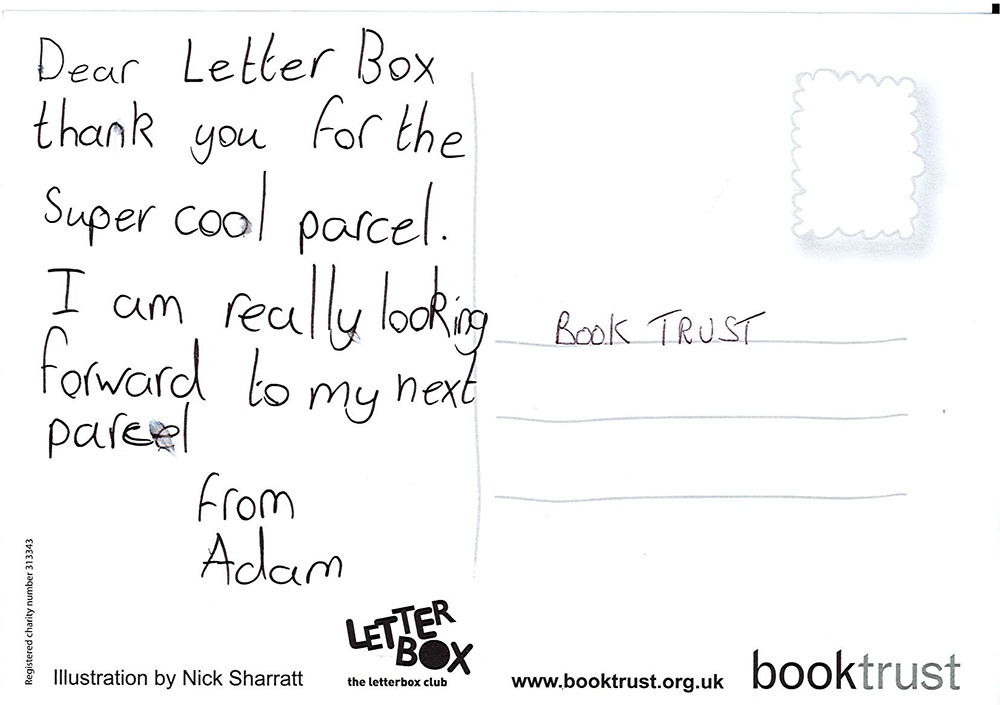 Dear Letter Box
thank you for the
Super cool parcel.
I am really looking
forward to my next
parcel
from
Adam
BOOK TRUST
Registered charity number 313343
Illustration by Nick Sharratt
LETTER
BOX
the letterbox club
www.booktrust.org.uk
booktrust